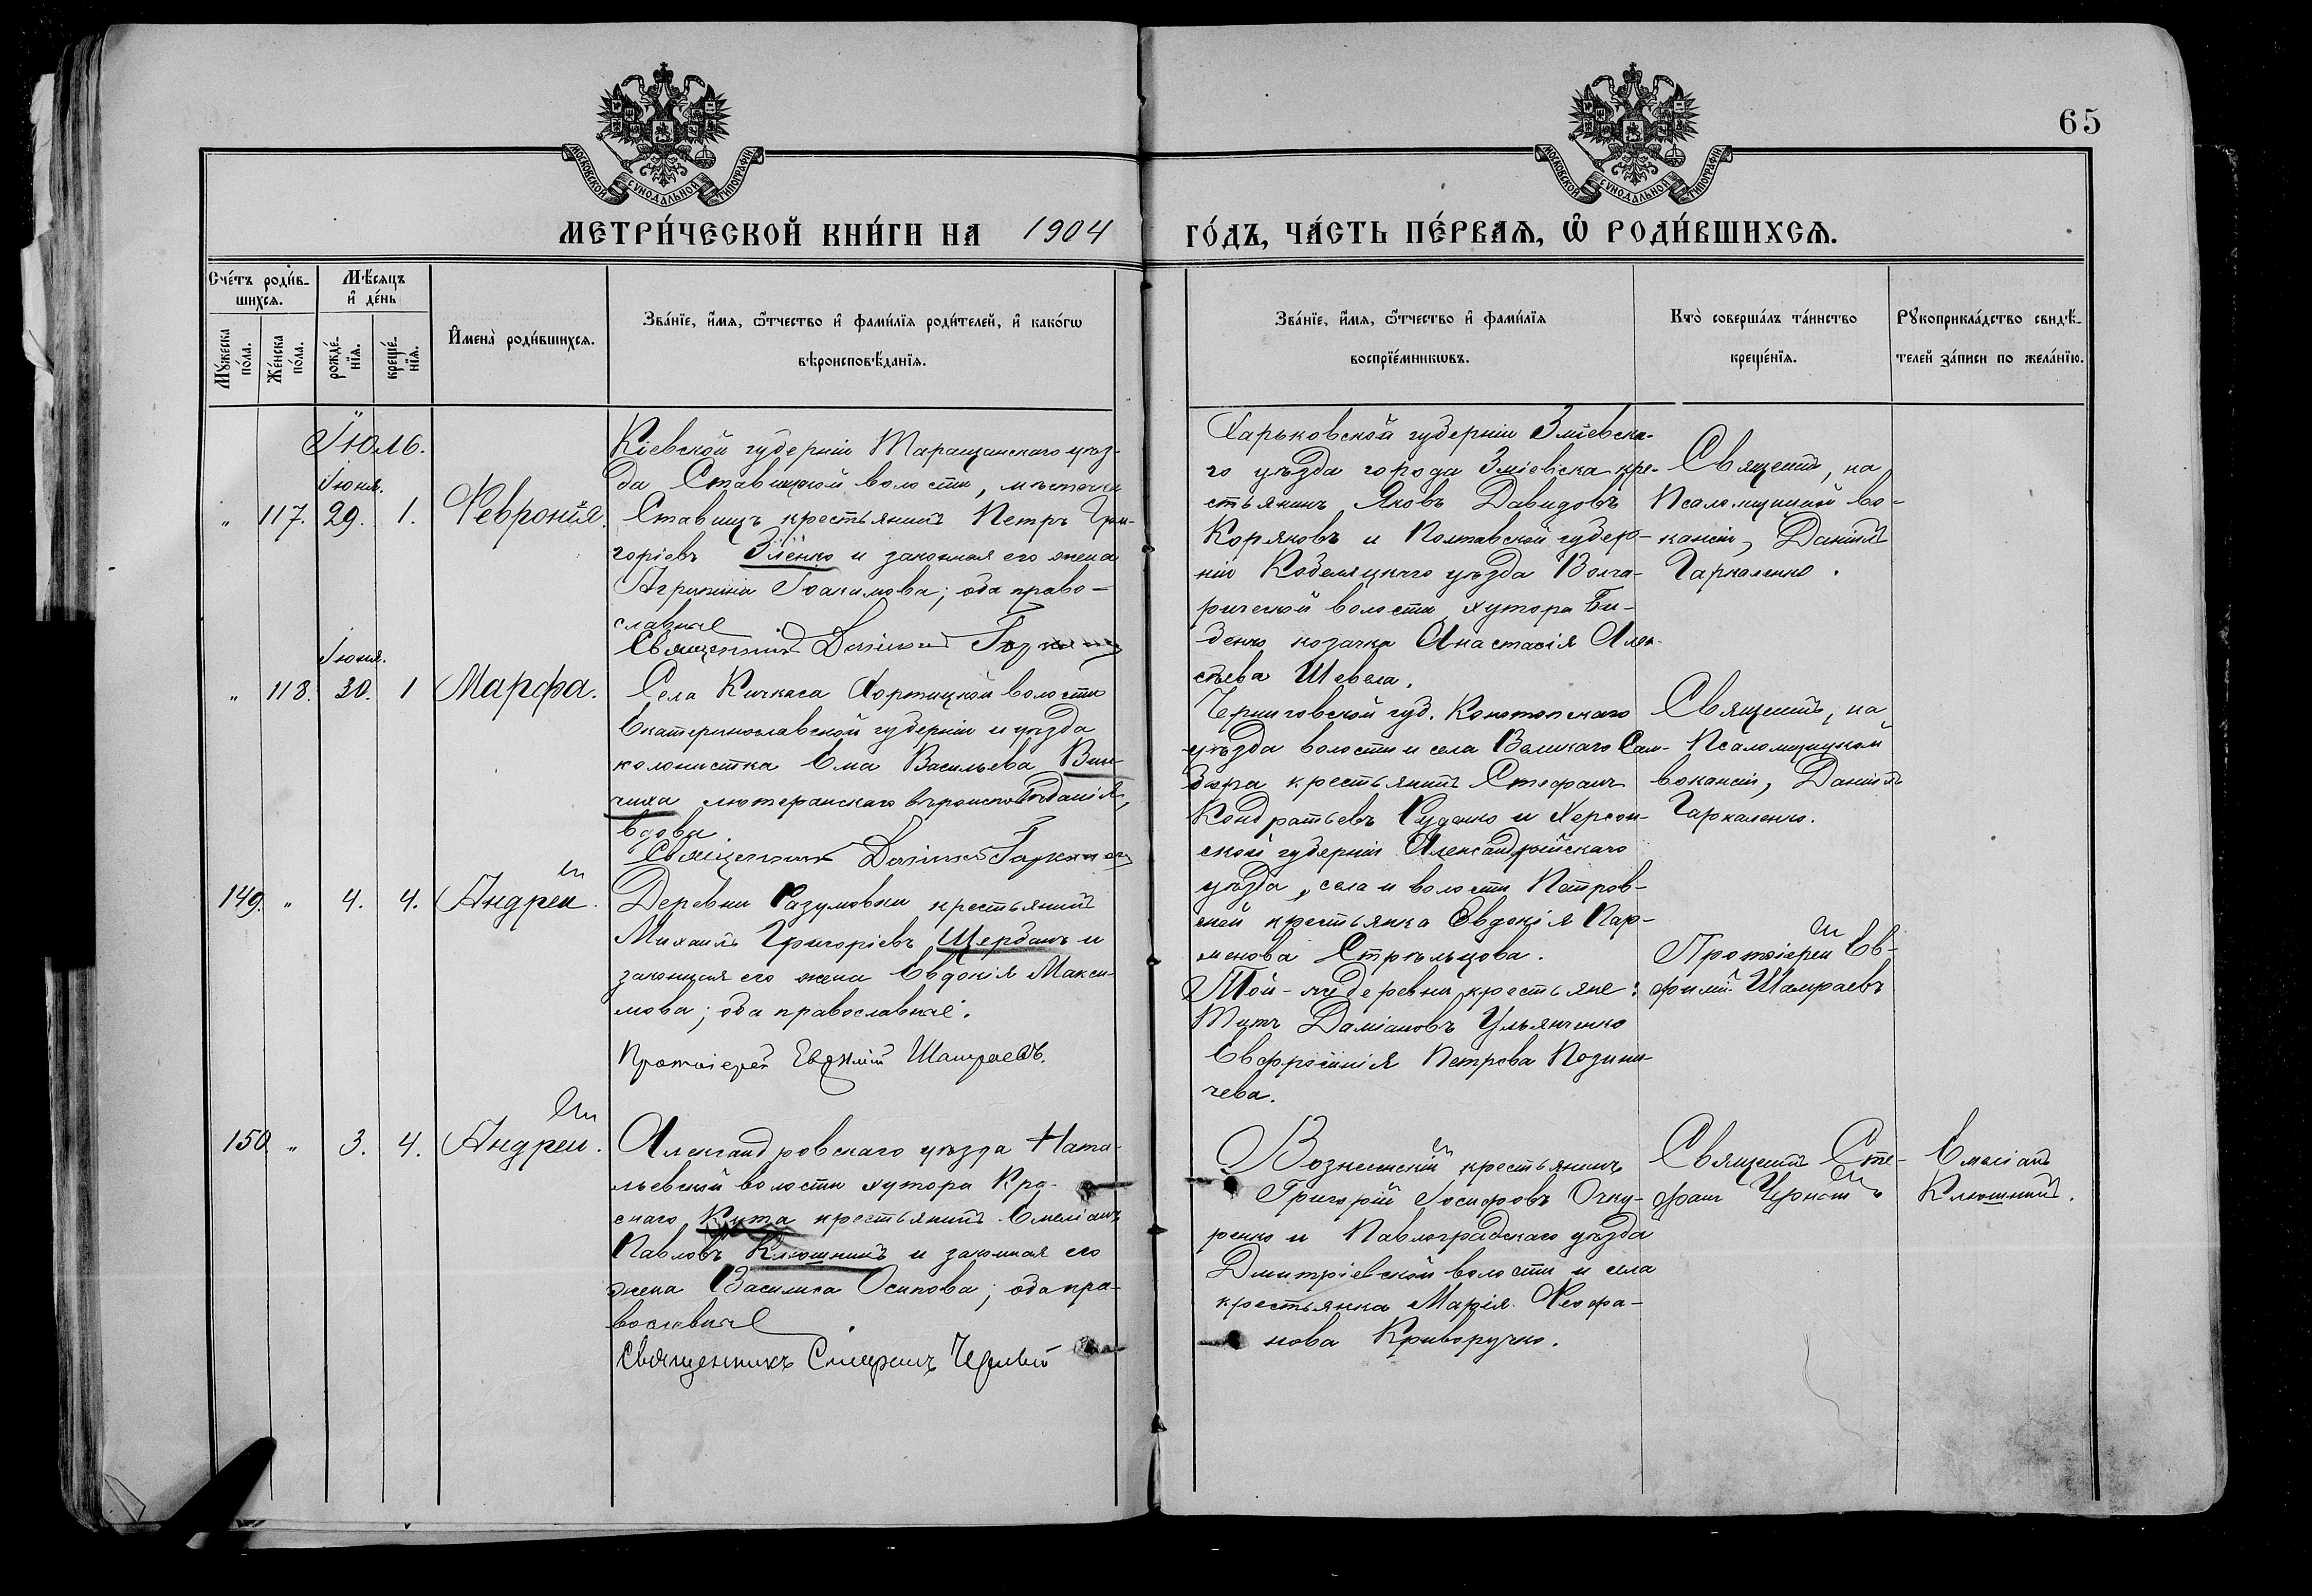 65
МОСКОВСКОЙ СѴНОДАЛЬНОЙ ТИПОГРАФІИ
МОСКОВСКОЙ СѴНОДАЛЬНОЙ ТИПОГРАФІИ
МЕТРИ́ЧЕСКОЙ КНИ́ГИ НА 1904 ГО́ДЪ, ЧА́СТЬ ПЕ́РВАѦ, Ѡ҆ РОДИ́ВШИХСѦ.
Сче́тъ роди́в-
шихсѧ.
Мꙋ́жеска
по́ла.
Же́нска
по́ла.
Мѣ́сѧцъ
и҆ де́нь
рожде́-
нїѧ.
креще́-
нїѧ.
И҆мена̀ роди́вшихсѧ.
Зва́нїе, и҆́мѧ, ѻ҆́тчество и҆ фами́лїѧ роди́телей, и҆ како́гѡ
вѣроисповѣ́данїѧ.
Зва́нїе, и҆́мѧ, ѻ҆́тчество и҆ фами́лїѧ
воспрїе́мникѡвъ.
Кто̀ соверша́лъ та́инство
креще́нїѧ.
Рꙋкоприкла́дство свидѣ́-
телей за́писи по жела́нїю.
Іюль.
Іюня.
" 117. 29. 1. Февронія.
Кіевской губерніи Таращанскаго уѣз-
да Ставищской волости, мѣстечка
Ставищъ крестьянинъ Петръ Гри-
горіевъ Зленко и законная его жена
Агрипина Іоакимова; оба право-
славные
Священникъ Даніилъ
Харьковской губерніи Зміевска-
го уѣзда города Зміевска кре-
стьянинъ Яковъ Давидовъ
Коряковъ и Полтавской губер-
ніи Кобеляцкаго уѣзда
волости хутора Би-
денко козачка Анастасія Алек-
сѣева Шевела.
Священ., на
Псаломщицкой ва-
кансіи, Даніилъ
Гаркаленко.
Іюня.
" 118. 30. 1 Марфа.
Села Кичкаса Хортицкой волости
Екатеринославской губерніи и уѣзда
колонистка Ема Васильева
лютеранскаго вѣроисповѣданія,
вдова.
Священникъ Даніилъ
Черниговской губ. Конотопскаго
уѣзда волости и села Великаго Сам-
бора крестьянинъ Стефанъ
Кондратьевъ Руденко и Херсон-
ской губерніи Александрійскаго
уѣзда, села и волости Петров-
ской крестьянка Евдокія Пар-
менова Стрѣльцова.
Священ., на
Псаломщицкой
вакансіи, Даніилъ
Гаркаленко.
149. " 4. 4. Андрей.
Деревни Разумовки крестьянинъ
Михаилъ Григоріевъ Щербань и
законная его жена Евдокія Макси-
мова; оба православные.
Протоіерей Евѳимій Шамраевъ.
Той-же деревни крестьяне:
Титъ Даміановъ Ульянченко
Евфросинія Петрова
чева.
Протоіерей Ев-
фимій Шамраевъ
150. " 3. 4. Андрей.
Александровскаго уѣзда Ната-
льевской волости хутора Кра-
снаго Кута крестьянинъ Емеліанъ
Павловъ Клюшникъ и законная его
жена Василиса Осипова; оба пра-
вославные
Священникъ Стефанъ Черный
Вознесенскій крестьянинъ
Григорій Іосифовъ Очку-
ренко и Павлоградскаго уѣзда
Дмитріевской волости и села
крестьянка Марія Феофа-
нова Криворучко.
Священ. Сте-
фанъ Черный
Емеліанъ
Клюшникъ.